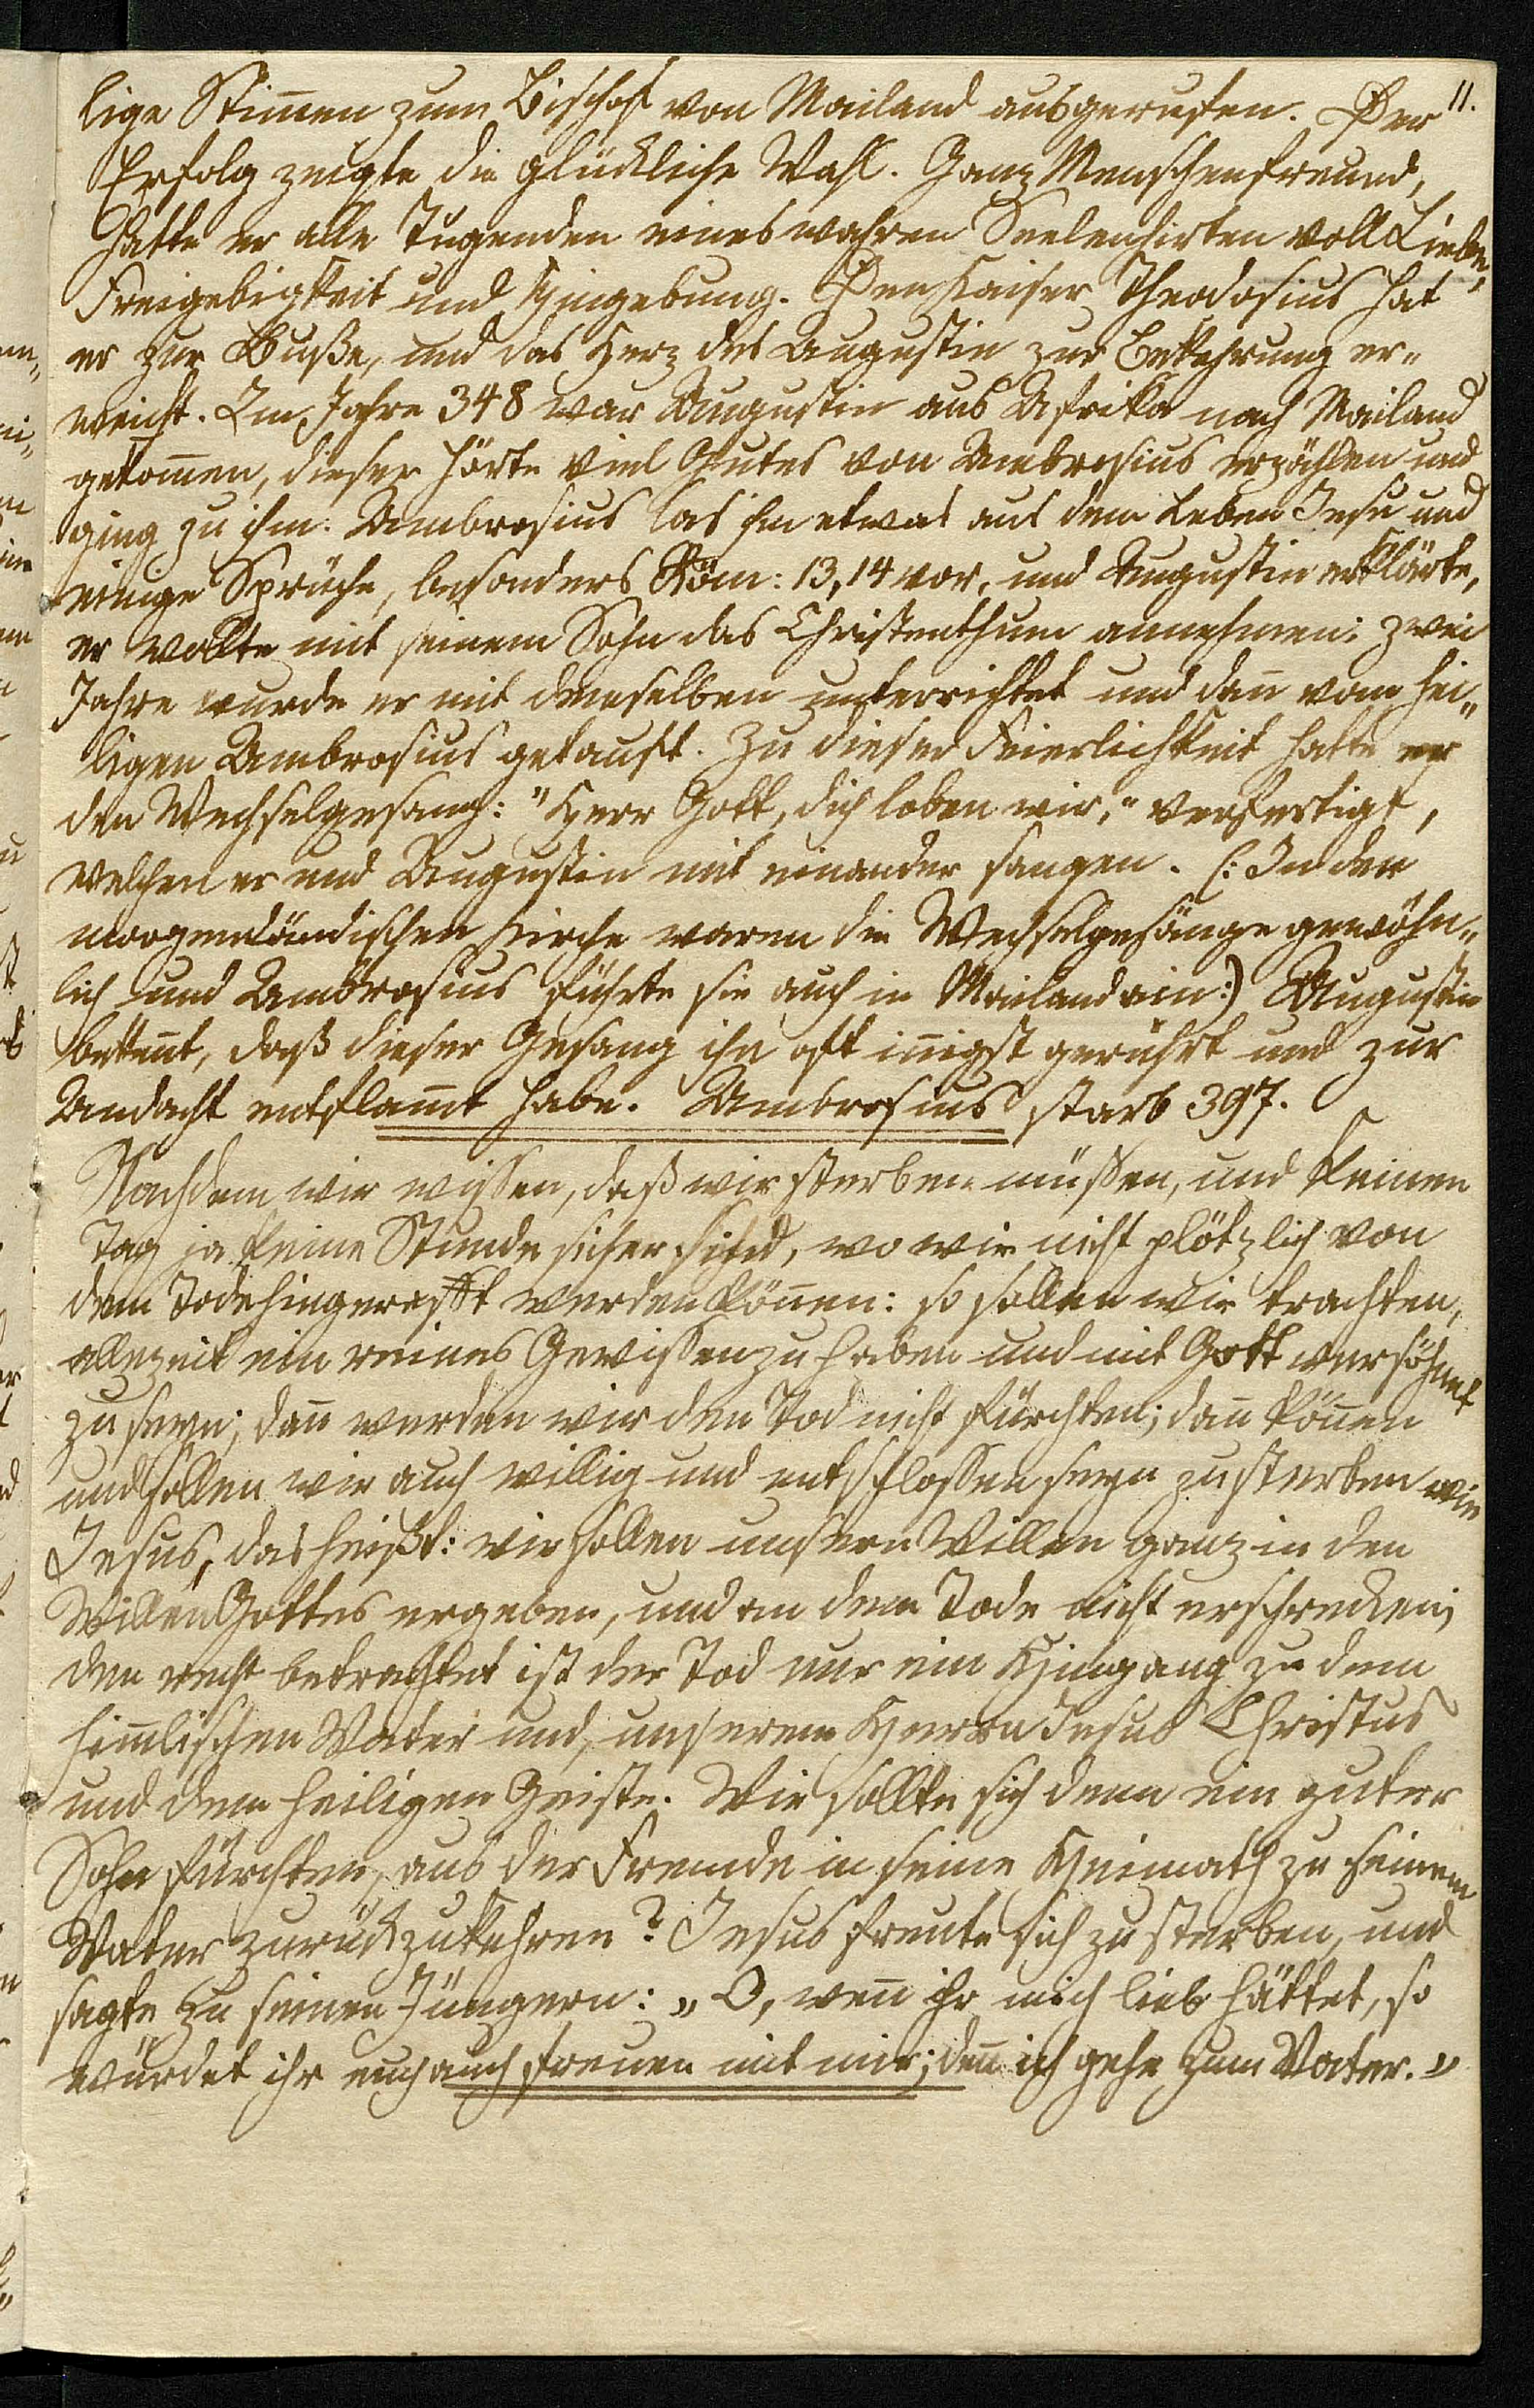 11.
lige Stim̅en zum Bischof von Mailand ausgerufen. Der
Erfolg zeigte die glückliche Wahl. Ganz Menschenfreund,
hatte er alle Tugenden eines wahren Seelenhirten voll Liebe,
Freigebigkeit und Hingebung. Den Kaiser Theodosius hat
er zur Buße, und das Herz des Augustin zur Bekehrung er„
weicht. Im Jahre 348 war Augustin aus Afrika nach Mailand
gekom̅en, dieser hörte viel Gutes von Ambrosius erzählen und
ging zu ihm. Ambrosius las ihm etwas aus dem Leben Jesu und
einige Sprüche, besonders Röm: 13,14 vor, und Augustin erklärte,
er wollte mit seinem Sohn das Christenthum annehmen: zwei
Jahre wurde er mit demselben unterrichtet und dan̅ vom hei„
ligen Ambrosius getauft. Zu dieser Feierlichkeit hatte er
den Wechselgesang: "Herr Gott, dich loben wir," verfertigt,
welchen er und Augustin mit einander sangen. (: In der
morgenländischen Kirche waren die Wechselgesänge gewöhn„
lich und Ambrosius führte sie auch in Mailand ein:) Augustin
beken̅t, daß dieser Gesang ihn oft in̅igst gerührt und zur
Andacht entflam̅t habe. Ambrosius starb 397.
Nachdem wir wissen, daß wir sterben müßen, und keinen
Tag ja keine Stunde sicher sind, wo wir nicht plötzlich von
dem Tode hingerafft werden kön̅en: so sollen wir trachten,
allezeit ein reines Gewissen zu haben und mit Gott versöhnet
zu seyn; dan̅ werden wir den Tod nicht fürchten; dan̅ kön̅en
und sollen wir auch willig und entschlossen seyn zu sterben wie
Jesus, das heißt: wir sollen unsern Willen ganz in den
Willen Gottes ergeben, und an dem Tode nicht erschrecken;
den recht betrachtet ist der Tod nur ein Hingang zu dem
him̅lischen Vater und, unserem Herrn Jesus Christus
und dem heiligen Geiste. Wie sollte sich denn ein guter
Sohn fürchten, aus der Fremde in seine Heimath zu seinem
Vater zurückzukehren? Jesus freute sich zu sterben, und
sagte zu seinen Jüngern: „O, wen̅ ihr mich lieb hättet, so
würdet ihr euch auch freuen mit mir; den̅ ich gehe zum Vater."